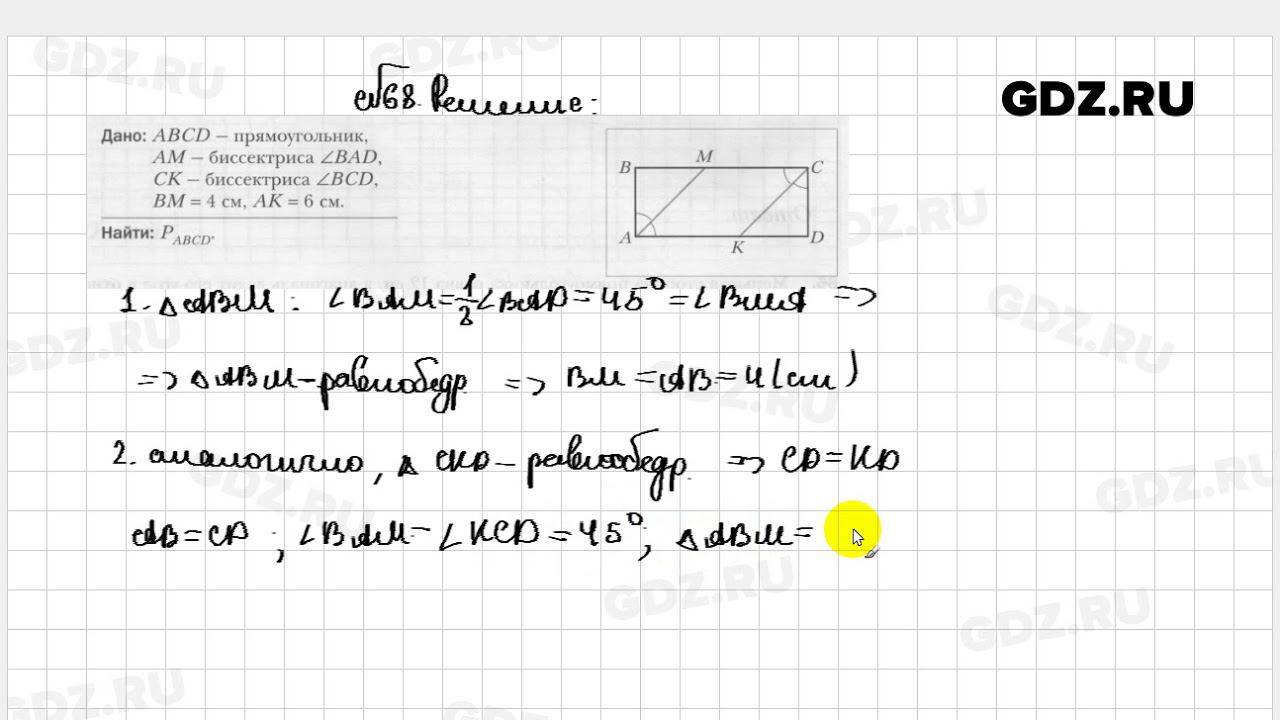 GDZ.RU
№68. Решение:
Дано: ABCD – прямоугольник,
AM – биссектриса ∠BAD,
CK – биссектриса ∠BCD,
BM = 4 см, AK = 6 см.
Найти: P_ABCD.
B M C
A K D
1. △ABM: ∠BAM=1/2∠BAD=45°=∠BMA =>
=> △ABM-равнобедр. => BM=AB=4(см)
2. аналогично, △ CKD-равнобедр. => CD=KD
AB=CD; ∠BAM=∠KCD=45°; △ABM=